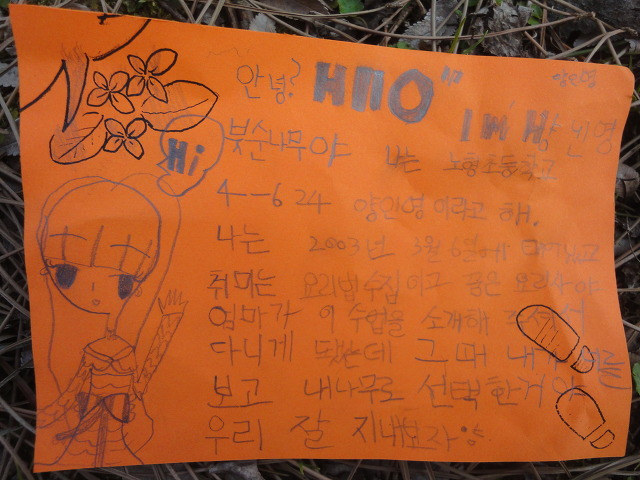 안녕?
Hi
붓순나무야 나는 노형초등학교
4-6 24 양인영이라고 해.
나는 2003년 3월 6일에 태어났고
취미는 요리법수집이고 꿈은 요리사야
엄마가 이 수업을 소개해 주셔서
다니게 됐는데 그때 내가 너를
보고 내나무로 선택한거야
우리 잘 지내보자 양